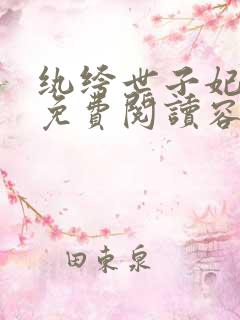 纨绔世子妃
免費閱讀容
田東泉